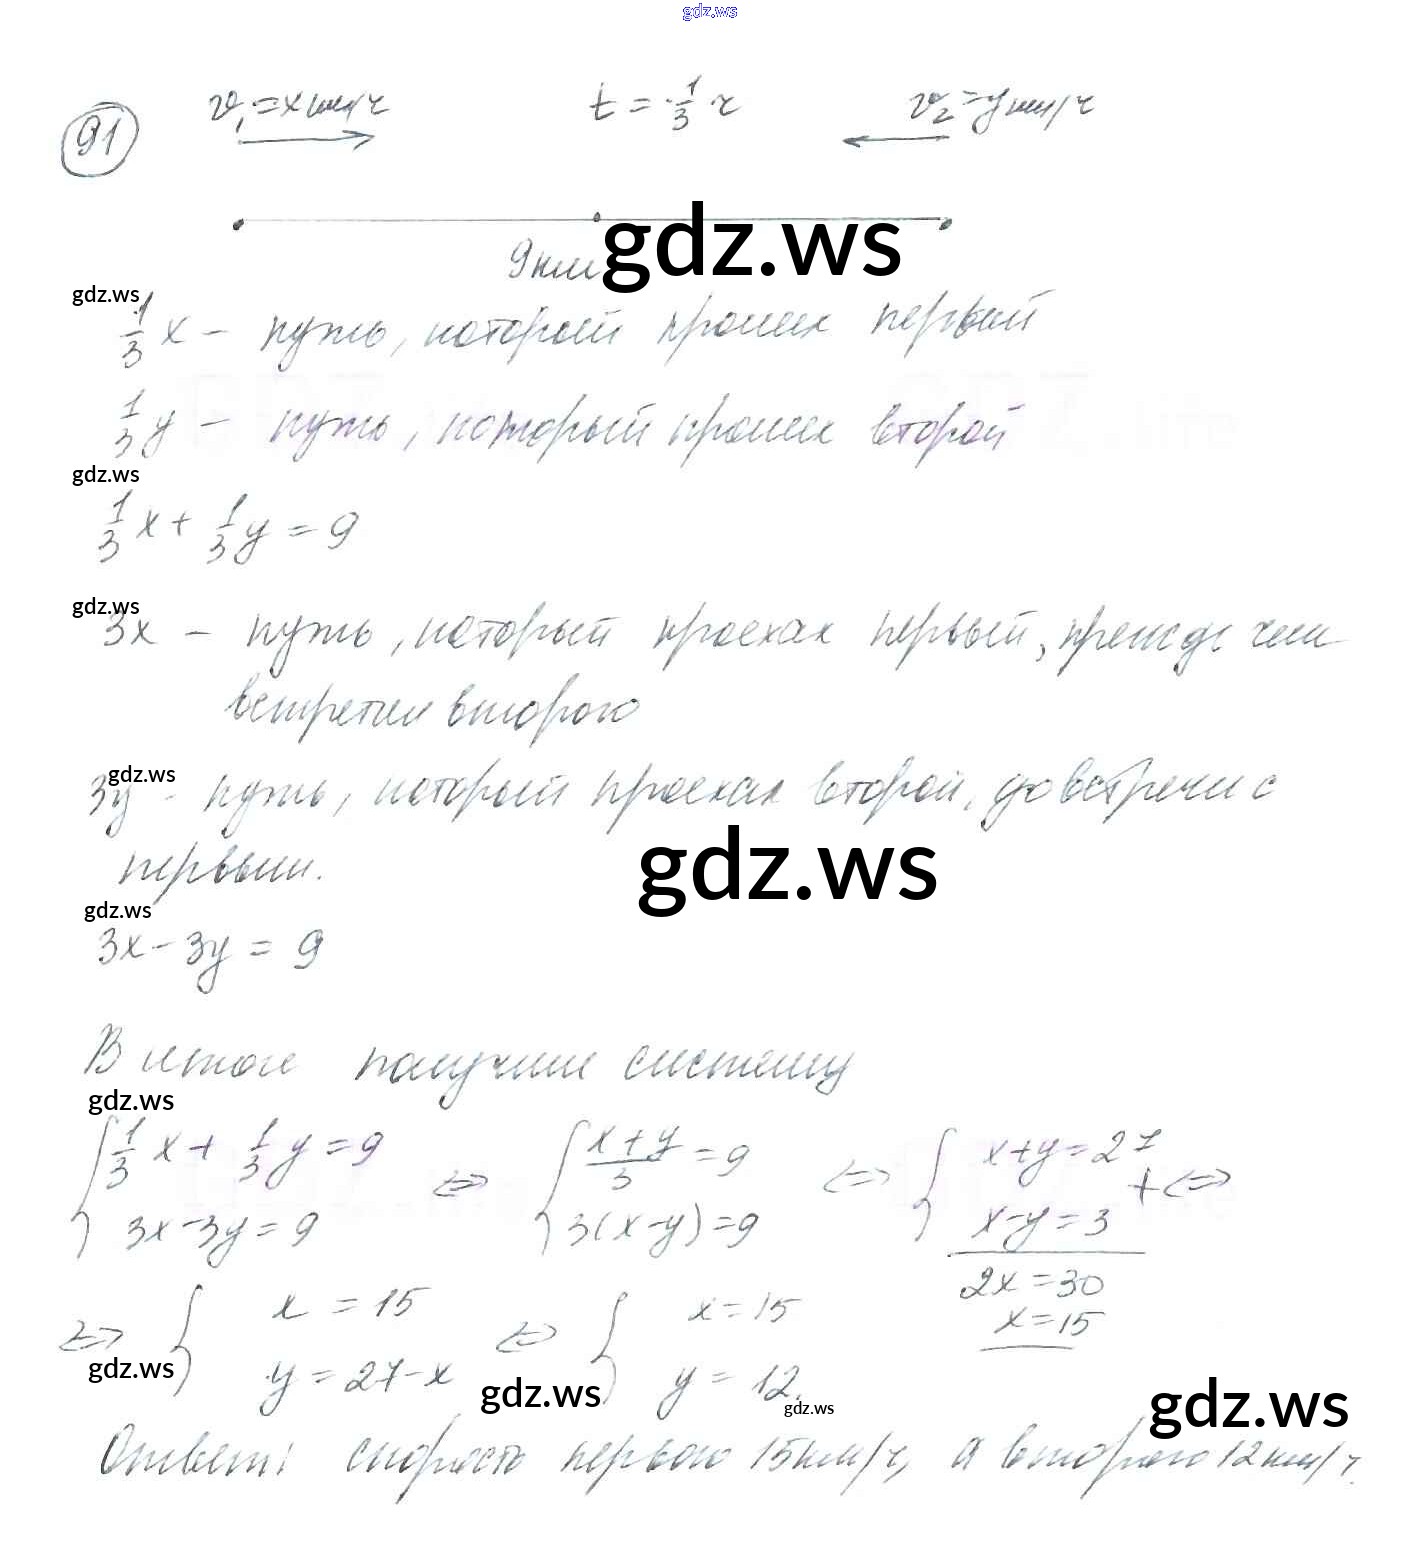 gdz.ws
91 v₁=x км/ч t = 1/3 ч v₂=y км/ч
9 км
gdz.ws
gdz.ws
1/3 x – путь, который прошел первый
1/3 y – путь, который прошел второй
gdz.ws
1/3 x + 1/3 y = 9
gdz.ws
3x – путь, который проехал первый, прежде чем
встретил второго
gdz.ws
3y – путь, который проехал второй, до встречи с
первым.
gdz.ws
gdz.ws
3x – 3y = 9
В итоге получим систему
gdz.ws
{ 1/3 x + 1/3 y = 9 ⇔ { (x+y)/3 = 9 ⇔ { x+y=27 + ⇔
3x-3y=9 3(x-y)=9 x-y=3
2x=30
x=15
⇔ { x = 15 ⇔ { x=15
y = 27-x y = 12.
gdz.ws
gdz.ws
gdz.ws
gdz.ws
Ответ: скорость первого 15км/ч, а второго 12км/ч.